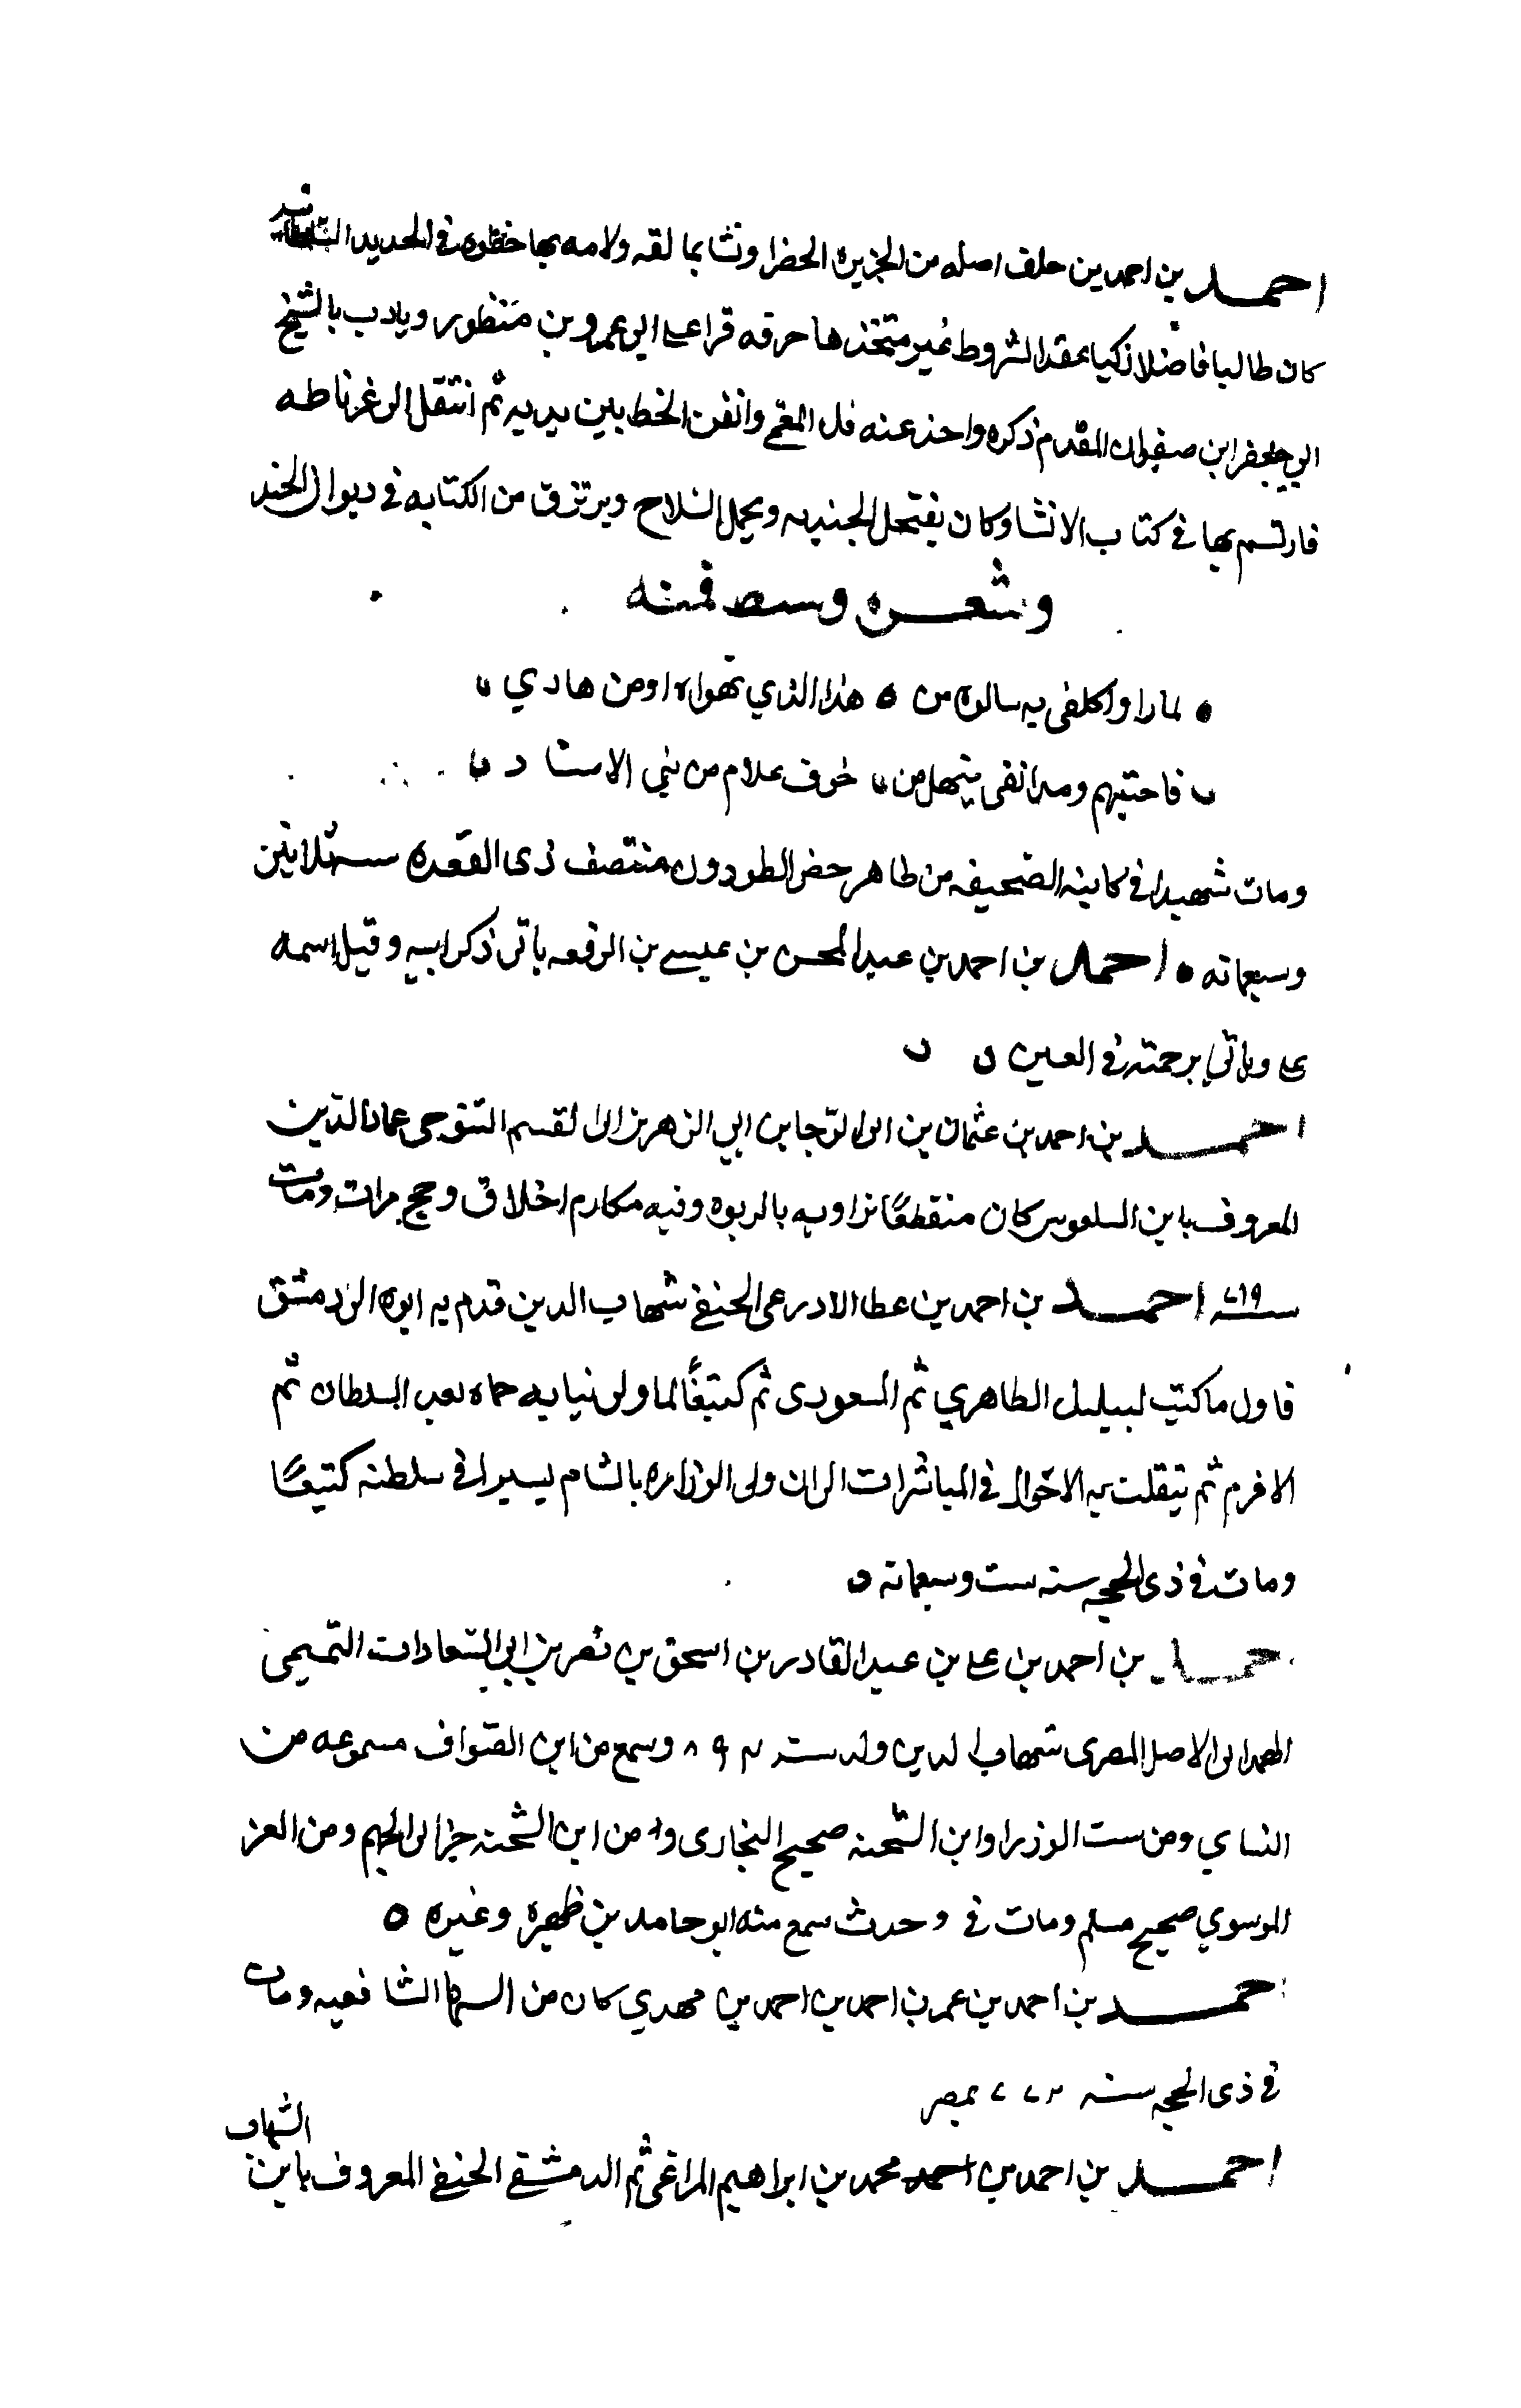 احمد بن احمد بن خلف اصله من الجزيرة الخضرا ونشا بمالقه ولامه بها خطوه في الحديد
كان طالبا فاضلا زكيا عقد الشروط غير متخذها حرفه قرا على ابي عمرو بن منظور ويادب بالشيخ
ابي جعفر ابن صفوان المقدم ذكره واخذ عنه واتقن الخط بين يديه ثم انتقل الى غرناطه
فارتسم بها في كتاب الانشا وكان ينتحل الجنديه ويحمل السلاح ويرتزق من الكتابه في ديوان الجند
وشعره وسط فمنه
لما راوا كلفي به سالوه من هذا الذي تهواه اومن هادي
فاجبتهم ومدانفي ينهل من خوف غلام من بني الاستاد
ومات شهيدا في كاينة من ظاهر منتصف ذي القعده سنه ثلاثين
وسبعمائه احمد بن احمد بن عبد المحسن بن عيسى بن الرفعه ياتي ذكر ابيه وقيل اسمه
على وياتي برجمته في العين
احمد بن احمد بن عثمان بن ابي الرجا بن ابي الزهر بن ابي القسم التنوخي عماد الدين
المعروف بابن السلعوس كان منقطعًا بزاويه بالربوه وفيه مكارم اخلاق وحج مرات ومات
سنه ٧١٩ احمد بن احمد بن عطا الادرعي الحنفي شهاب الدين قدم به ابوه الى دمشق
فاول ما كتب لبيليك الظاهري ثم المسعودي ثم كتبغًا لما ولي نيابه حماه بعد السلطان ثم
الافرم ثم تنقلت به الاحوال في المباشرات الى ان ولي الوزاره بالشام يسيرا في سلطنه كتبغًا
ومات في ذي الحجه سنه ست وسبعمائه
احمد بن احمد بن على بن عبد القادر بن اسحق بن نصر بن ابي السعادات التميمي
الهمداني الاصل المصري شهاب الدين ولد سنه وسمع من ابن الصواف مسموعه من
النساي ومن ست الوزرا وابن الشحنه صحيح البخاري و من ابن الشحنه جزا ابي الجهم ومن العز
الموسوي صحيح مسلم ومات في وحدث سمع منه ابو حامد بن ظهيرة وغيره
احمد بن احمد بن عمر بن احمد بن احمد بن مهدي كان من الشافعيه ومات
في ذي الحجه سنه ٧٧٣ بمصر
احمد بن احمد بن احمد محمد بن ابراهيم المراغي ثم الدمشقي الحنفي المعروف بابن الشهاب